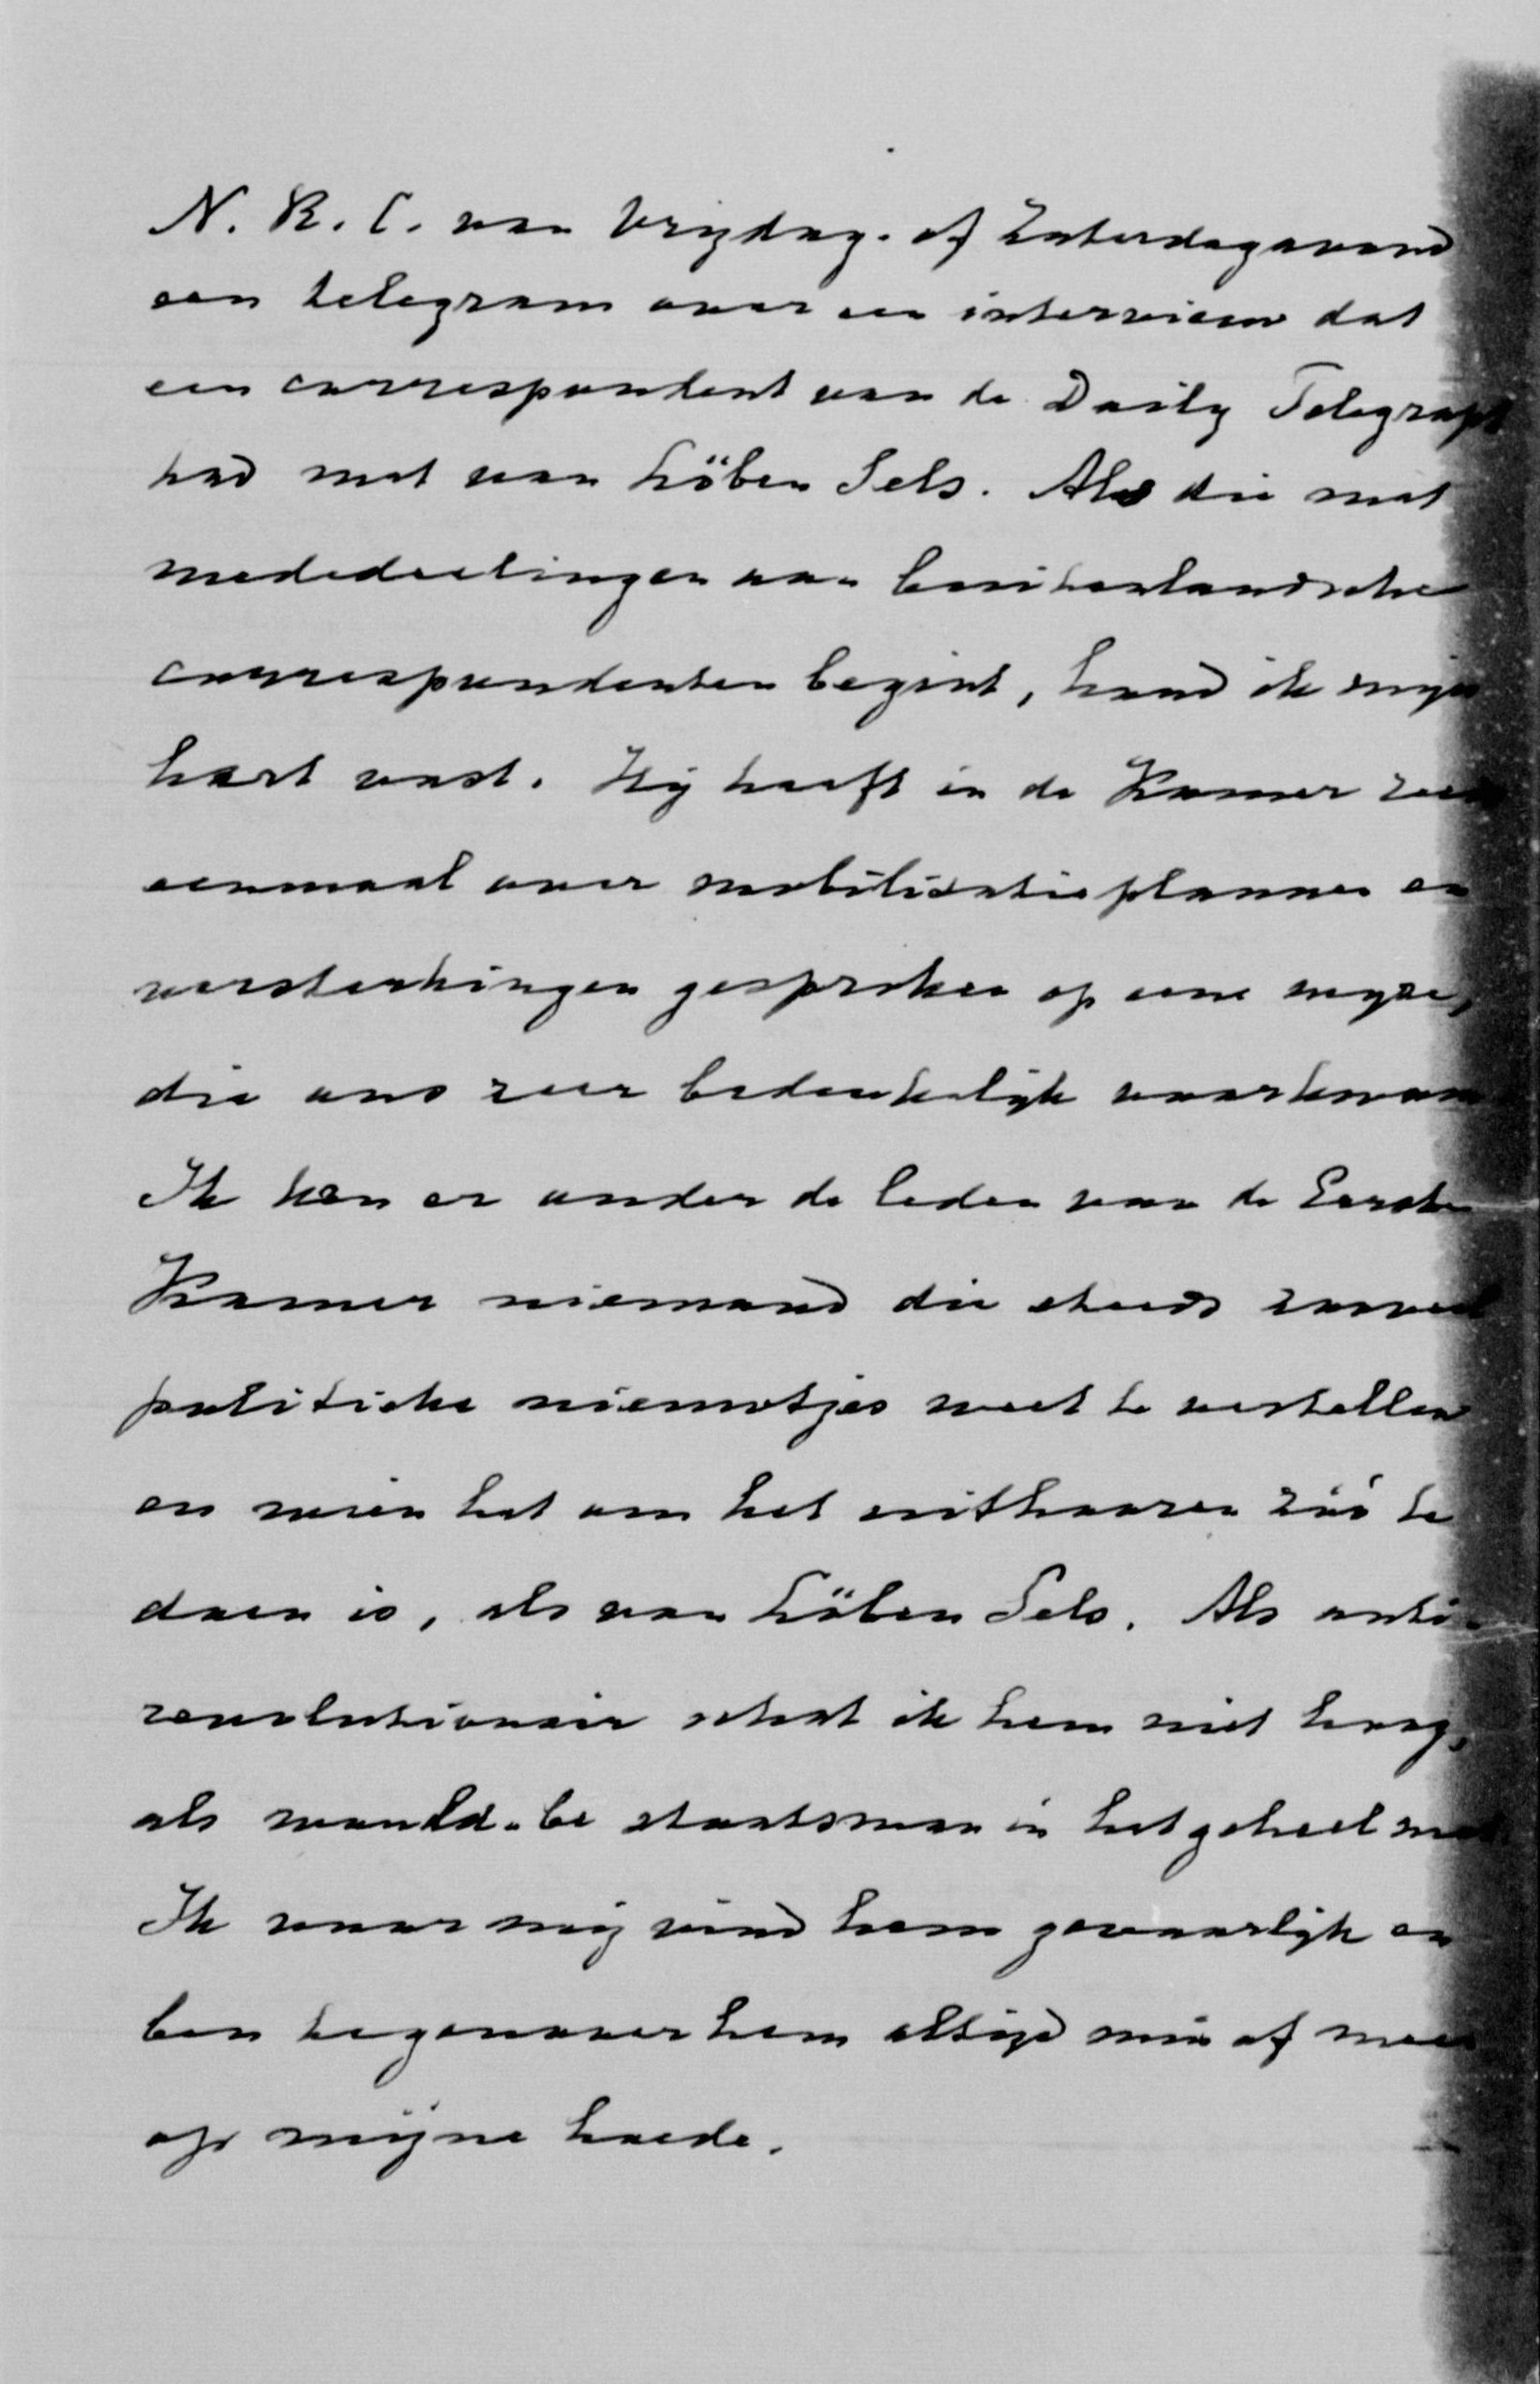 N. R. C. van Vrijdag- of Zaterdagavond
een telegram over een interview dat
een correspondent van de Daily Telegraph
had met van Löben Sels. Als die met
mededeelingen aan buitenlandsche
correspondenten begint, houd ik mijn
hart vast. Hij heeft in de Kamer reeds
eenmaal over mobilisatieplannen en
versterkingen gesproken op eene wijze,
die ons zeer bedenkelijk voorkwam
Ik ken er onder de leden van de Eerste
Kamer niemand die steeds zooveel
politieke nieuwtjes weet te vertellen
en wien het om het uithooren zóó te
doen is, als van Löben Sels. Als anti-
revolutionair schat ik hem niet hoog,
als would-be staatsman in het geheel niet.
Ik voor mij vind hem gevaarlijk en
ben tegenover hem altijd min of meer
op mijne hoede.